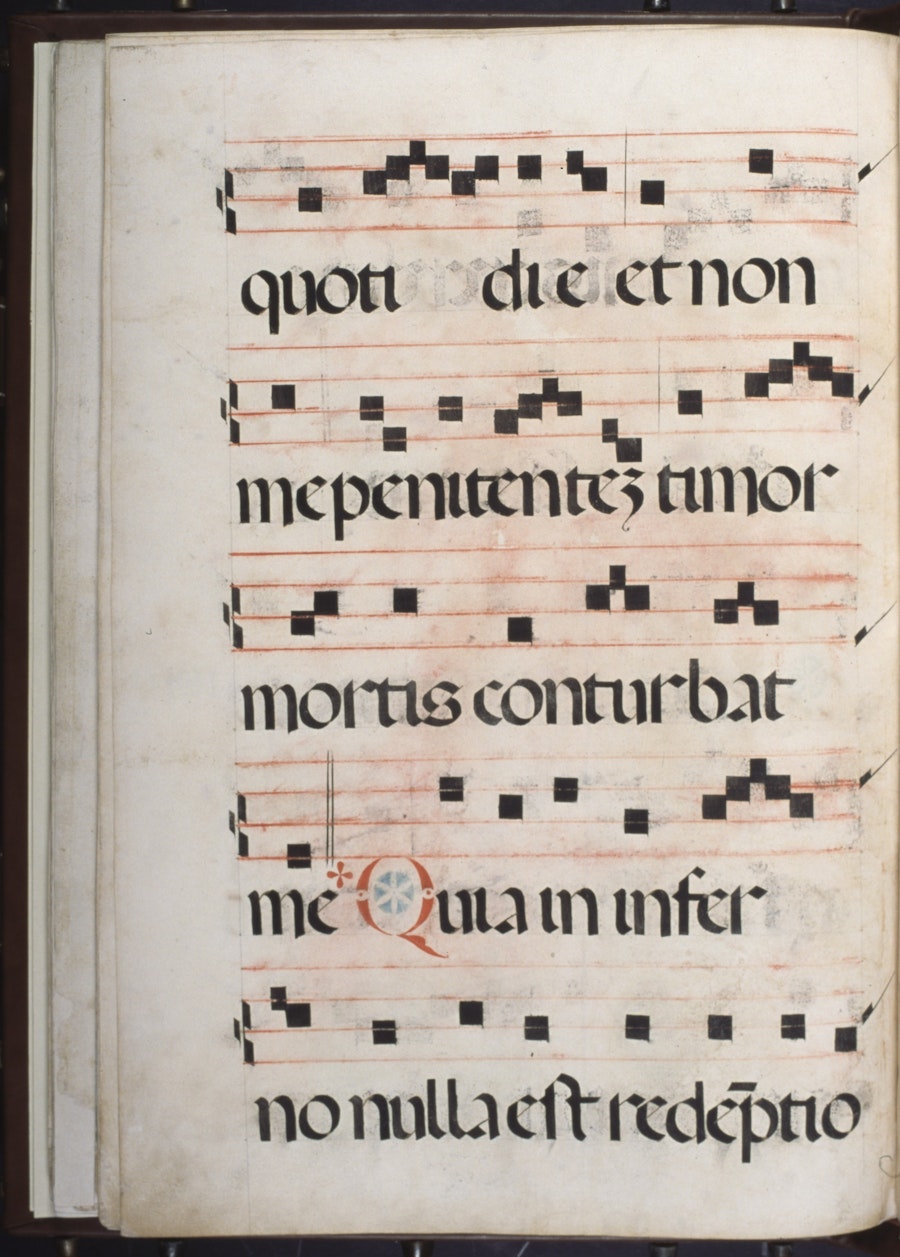 quoti die et non
me penitentez timor
mortis conturbat
me Quia in infer
no nulla est redēptio